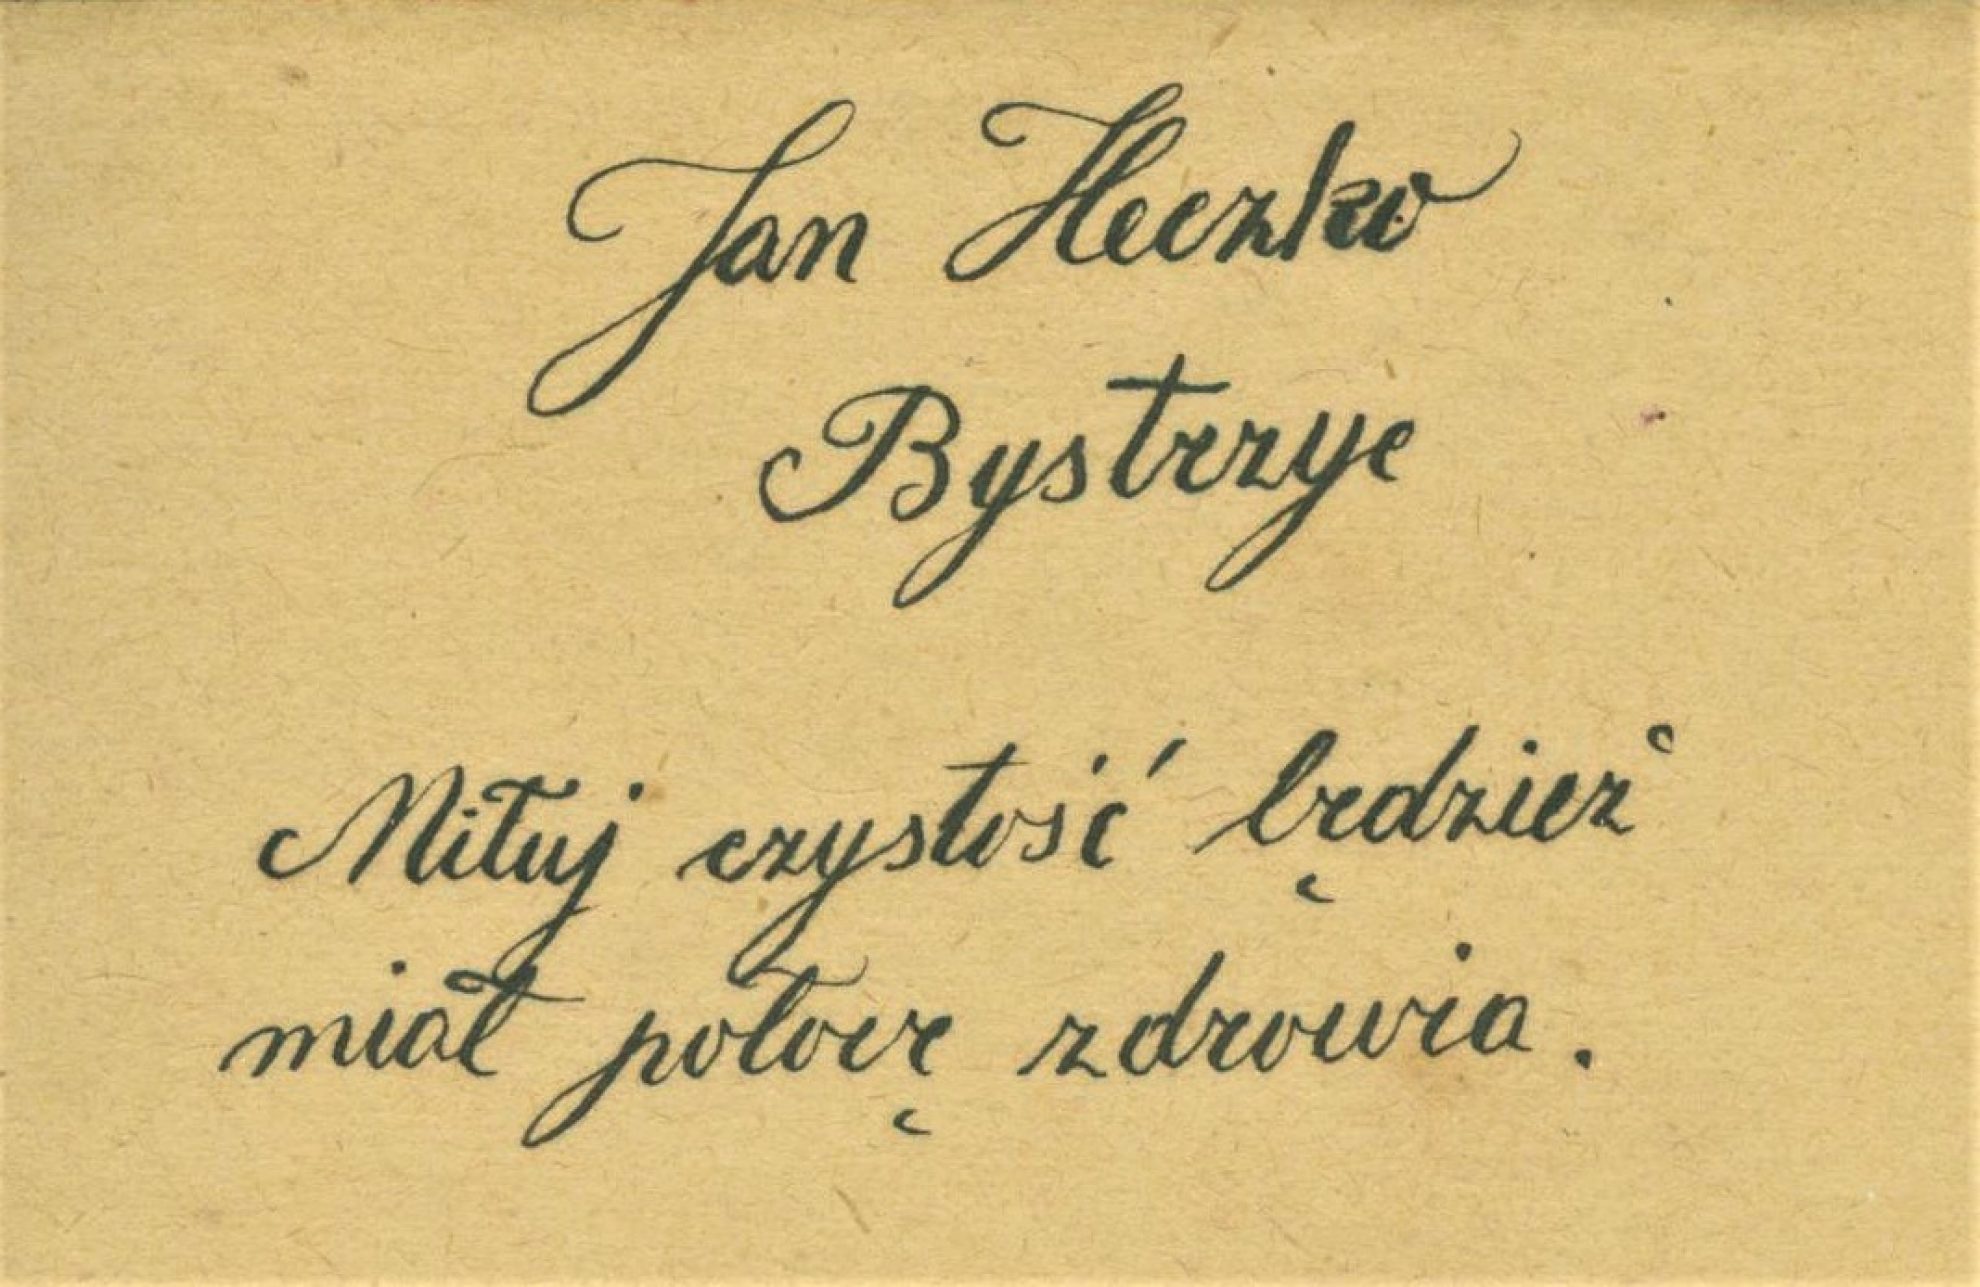 Jan Heczko
Bystrzyc
Miłuj czystość będzież
miał połowę zdrowia.